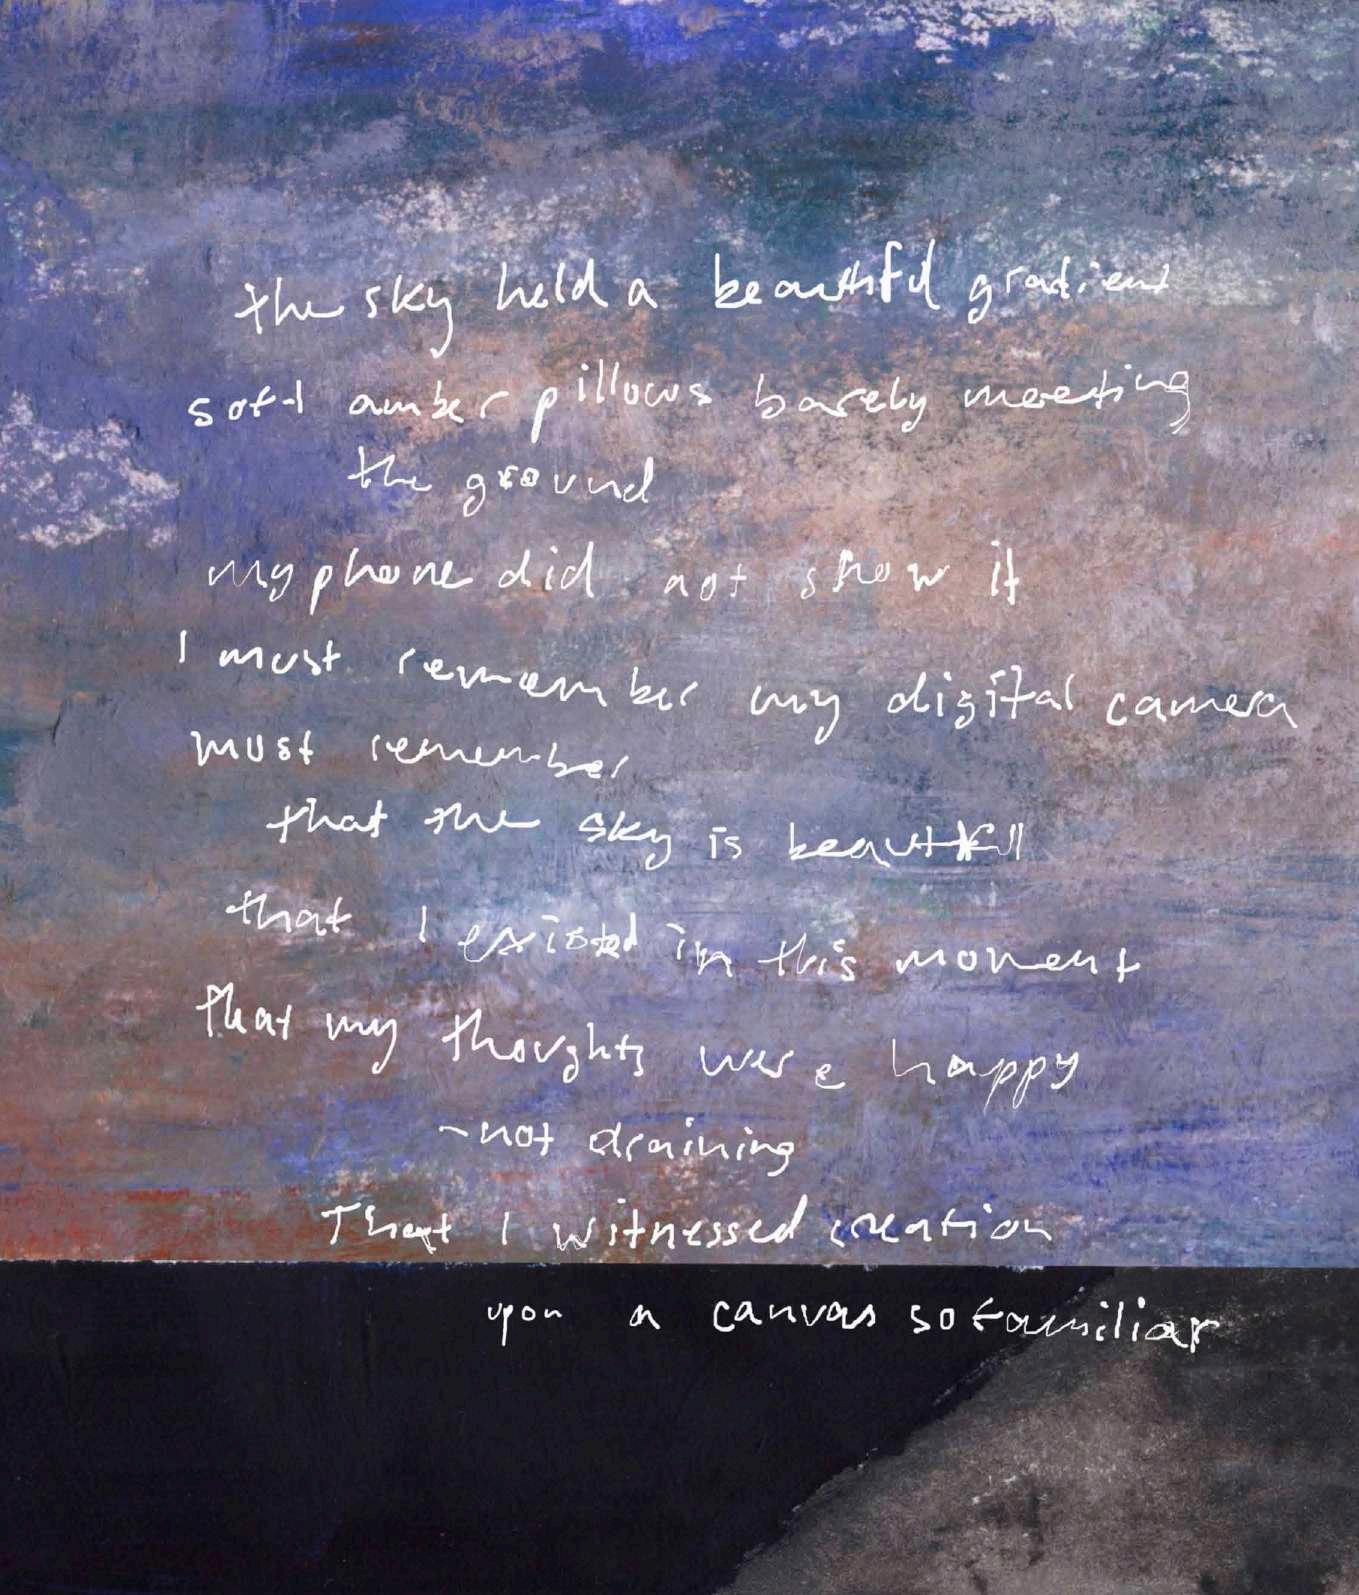 the sky held a beautiful gradient
soft amber pillows barely meeting
the ground
my phone did not show it
I must remember my digital camera
must remember
that the sky is beautiful
that I existed in this moment
that my thoughts were happy
~not draining
That I witnessed creation
upon a canvas so familiar